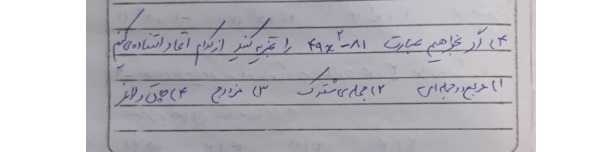 ۴) اگر بخواهیم عبارت ۴۹x²-۸۱ را تجزیه کنید از کدام اتحاد استفاده می‌کنیم
۱) مربع دو جمله‌ای ۲) جمله مشترک ۳) مزدوج ۴) چاق و لاغر